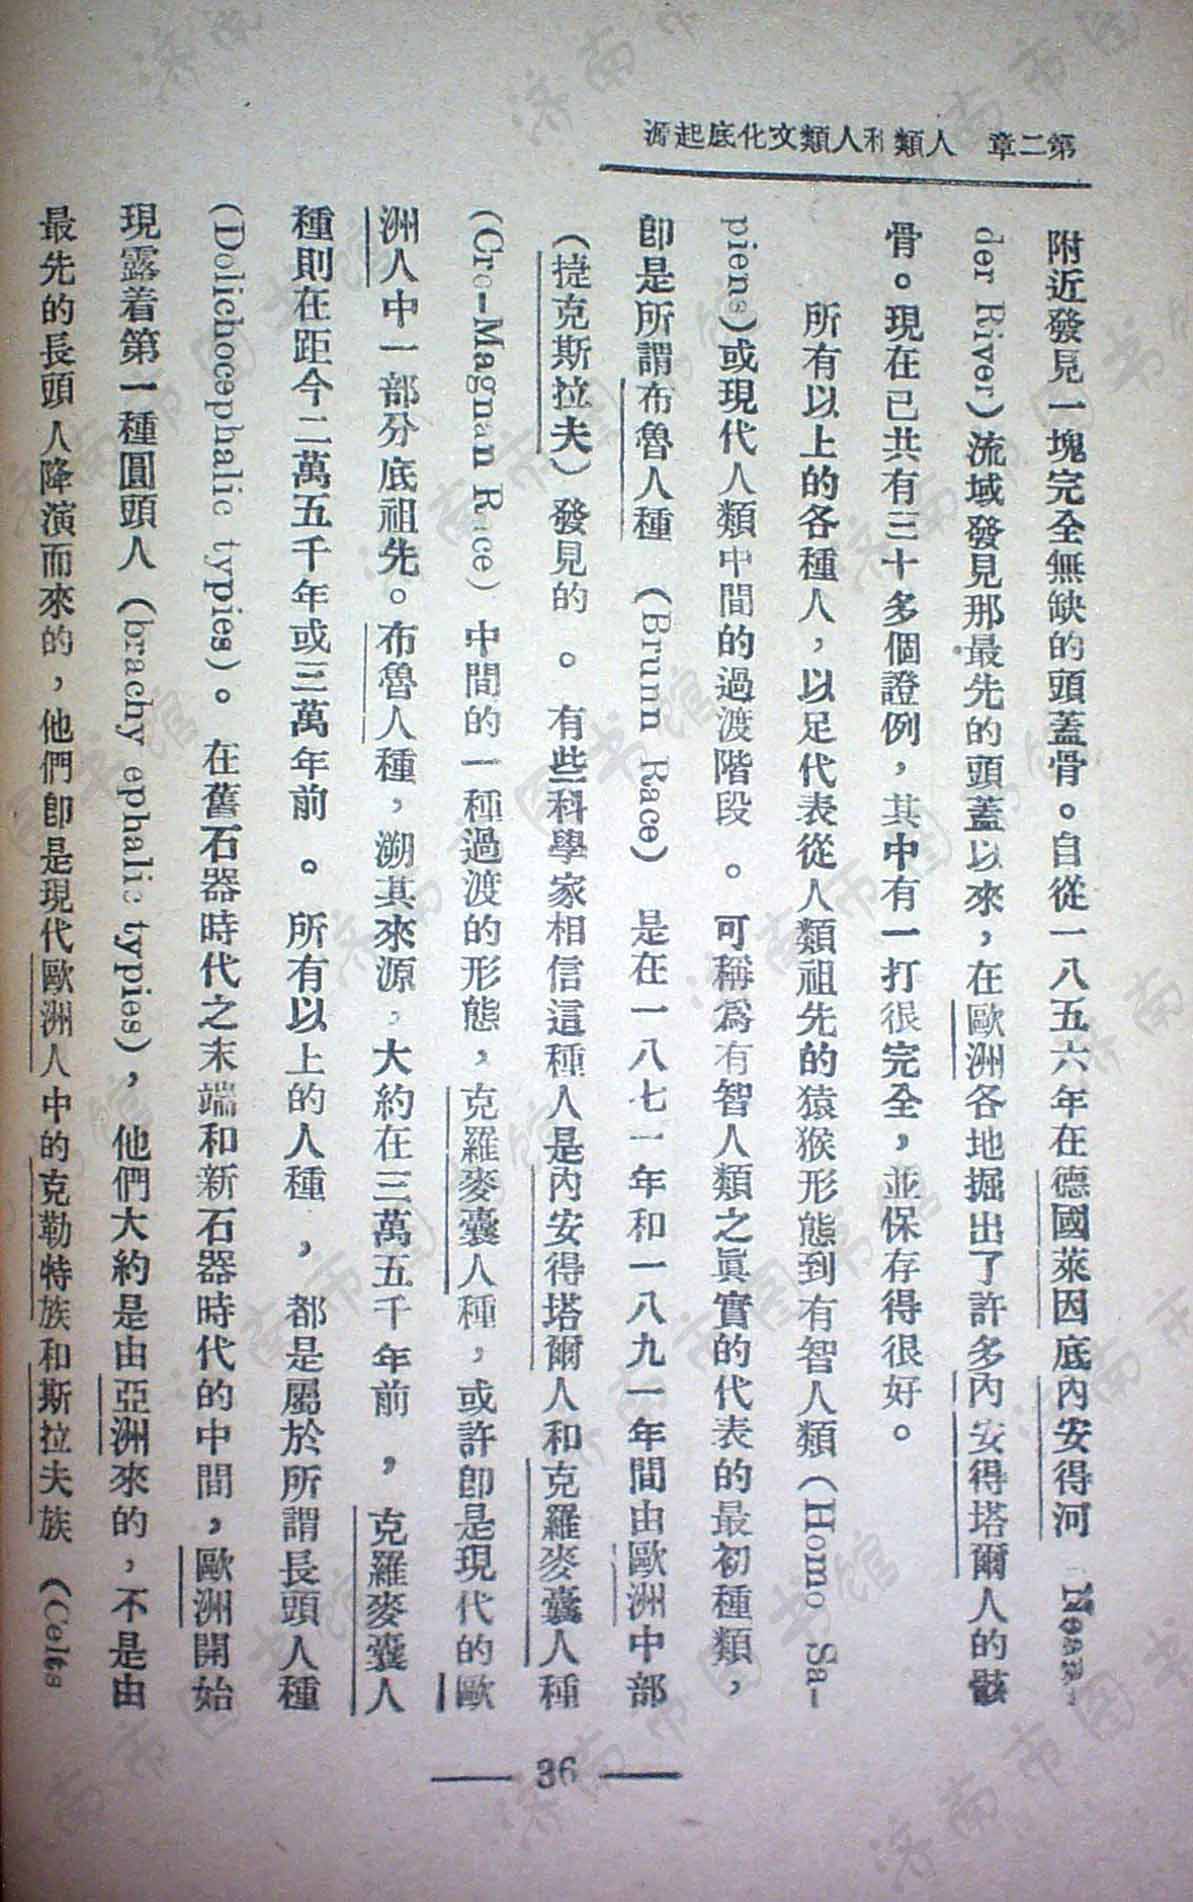 第二章　人類和人類文化底起源
附近發見一塊完全無缺的頭蓋骨。自從一八五六年在德國萊因底內安得河 Nean-
der River）流域發見那最先的頭蓋以來，在歐洲各地掘出了許多內安得塔爾人的骸
骨。現在已共有三十多個證例，其中有一打很完全，並保存得很好。
所有以上的各種人，以足代表從人類祖先的猿猴形態到有智人類（Homo Sa-
piens）或現代人類中間的過渡階段。可稱爲有智人類之眞實的代表的最初種類，
卽是所謂布魯人種（Brunn Race）是在一八七一年和一八九一年間由歐洲中部
（捷克斯拉夫）發見的。有些科學家相信這種人是內安得塔爾人和克羅麥囊人種
（Cro-Magnan Race）中間的一種過渡的形態，克羅麥囊人種，或許卽是現代的歐
洲人中一部分底祖先。布魯人種，溯其來源，大約在三萬五千年前，克羅麥囊人
種則在距今二萬五千年或三萬年前。所有以上的人種，都是屬於所謂長頭人種
（Dolichocephalic typies）。在舊石器時代之末端和新石器時代的中間，歐洲開始
現露着第一種圓頭人（brachy ephalic typies），他們大約是由亞洲來的，不是由
最先的長頭人降演而來的，他們卽是現代歐洲人中的克勒特族和斯拉夫族（Celts
— 36 —
济南市图书馆